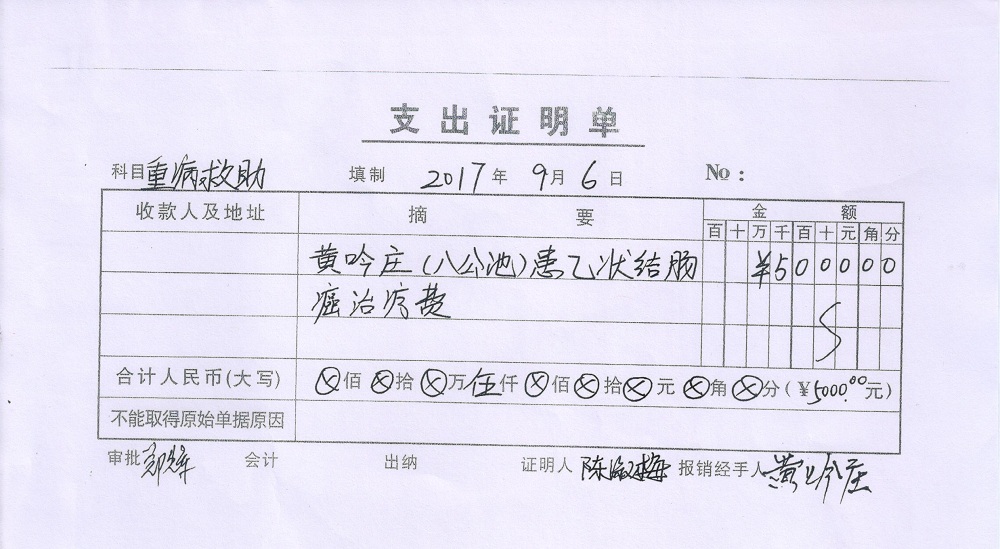 支出证明单
科目 重病救助 填制 2017 年 9 月 6 日 No：
收款人及地址 摘要 金额
百 十 万 千 百 十 元 角 分
黄吟庄（八公池）患乙状结肠 ¥5 0 0 0 0 0
癌治疗费
合计人民币(大写) ⊗佰 ⊗拾 ⊗万 伍仟 ⊗佰 ⊗拾 ⊗元 ⊗角 ⊗分 (¥5000.00元)
不能取得原始单据原因
审批 会计 出纳 证明人 报销经手人 黄吟庄